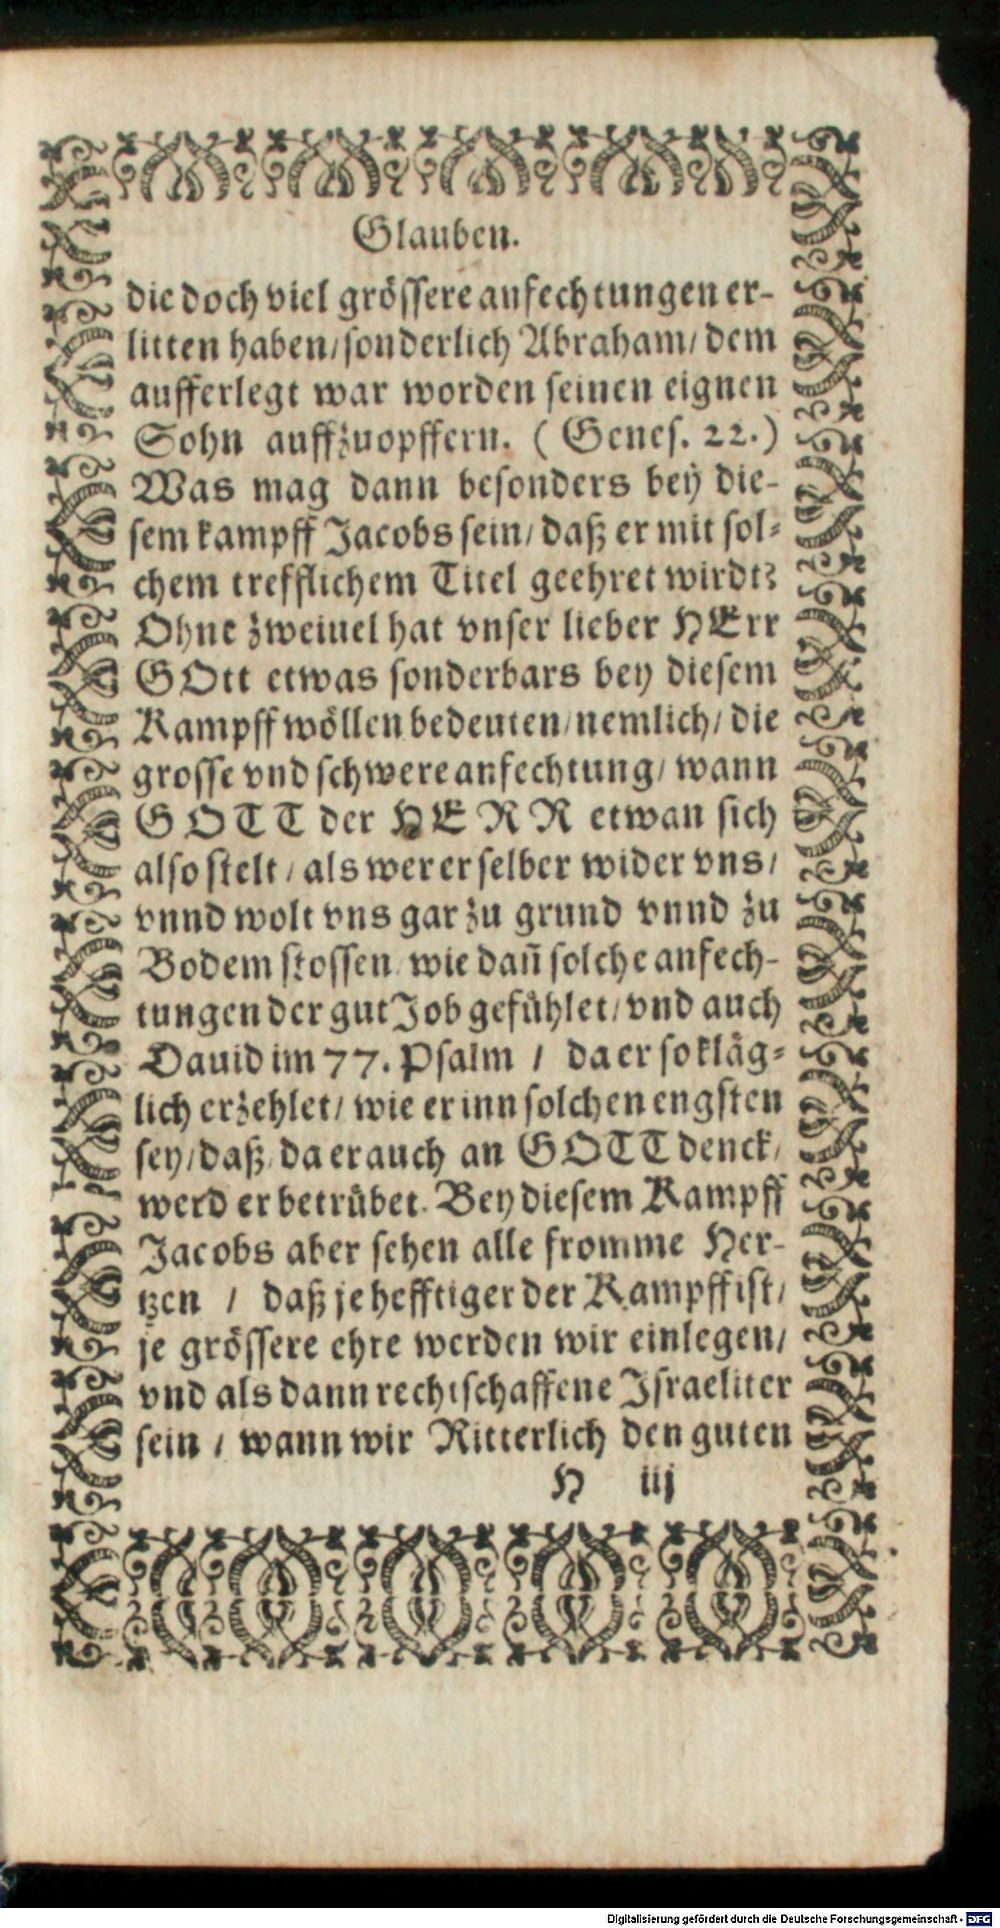 Glauben.
die doch viel grössere anfechtungen er-
litten haben/ sonderlich Abraham/ dem
aufferlegt war worden seinen eignen
Sohn auffzuopffern. ( Genes. 22.)
Was mag dann besonders bey die-
sem kampff Jacobs sein/ daß er mit sol-
chem trefflichem Titel geehret wirdt?
Ohne zweiuel hat vnser lieber HErr
GOtt etwas sonderbars bey diesem
Kampff wöllen bedeuten/ nemlich/ die
grosse vnd schwere anfechtung/ wann
GOTT der HERR etwan sich
also stelt / als wer er selber wider vns/
vnnd wolt vns gar zu grund vnnd zu
Bodem stossen/ wie dañ solche anfech-
tungen der gut Job gefühlet/ vnd auch
Dauid im 77. Psalm / da er so kläg-
lich erzehlet/ wie er inn solchen engsten
sey/ daß/ da er auch an GOTT denck/
werd er betrübet. Bey diesem Kampff
Jacobs aber sehen alle fromme Her-
tzen / daß je hefftiger der Kampff ist/
je grössere ehre werden wir einlegen/
vnd als dann rechtschaffene Israeliter
sein / wann wir Ritterlich den guten
H iij
Digitalisierung gefördert durch die Deutsche Forschungsgemeinschaft - DFG